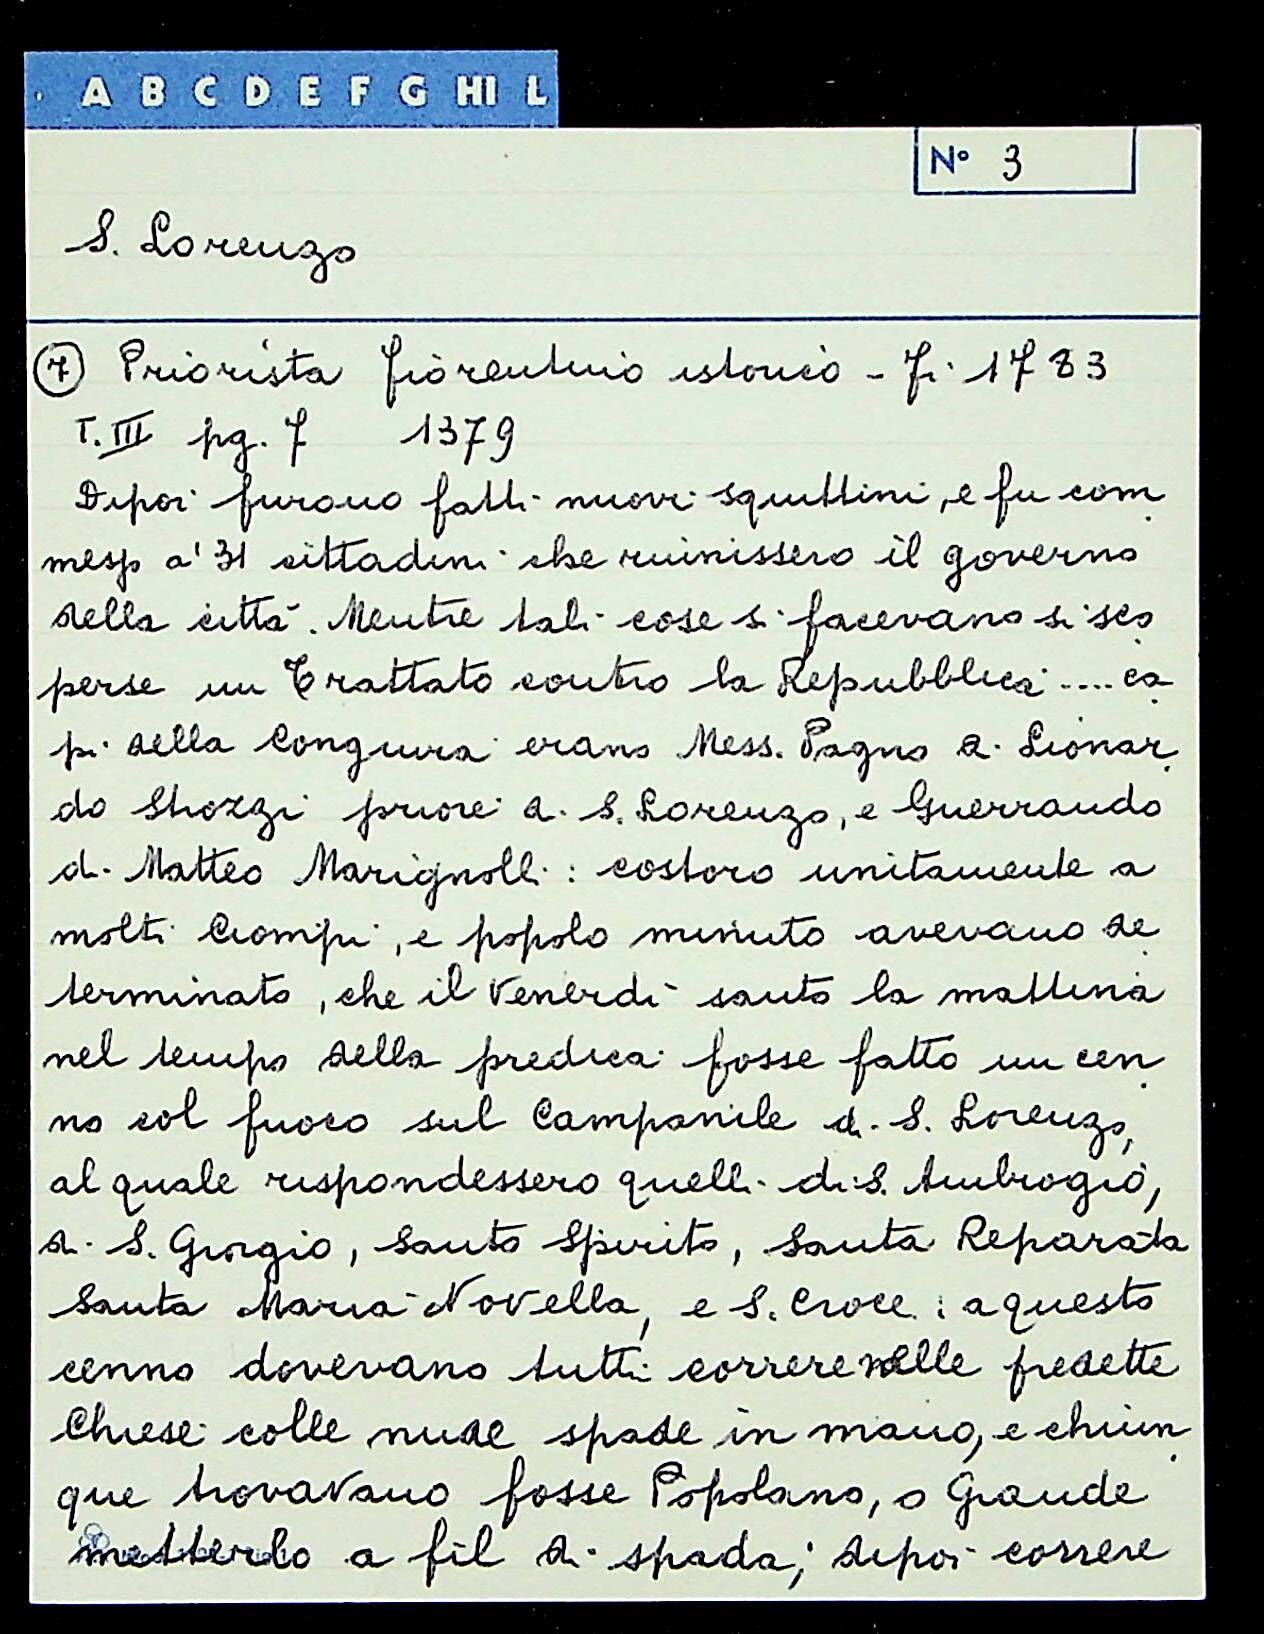 A B C D E F G HI L
N° 3
S. Lorenzo
⑦ Priorista fiorentino istorico - Fi. 1783
T. III pg. 7 1379
Dipoi furono fatti nuovi squittini, e fu com
messo a' 31 cittadini che riunissero il governo
della città. Mentre tali cose si facevano si sco
perse un Trattato contro la Repubblica .... ca
pi della Congiura erano Mess. Pagno di Lionar
do Strozzi priore di S. Lorenzo, e Guerrando
di Matteo Marignolli : costoro unitamente a
molti Ciompi, e popolo minuto avevano de
terminato, che il Venerdì santo la mattina
nel tempo della predica fosse fatto un cen
no col fuoco sul Campanile di S. Lorenzo,
al quale rispondessero quelli di S. Ambrogio,
di S. Giorgio, Santo Spirito, Santa Reparata
Santa Maria Novella, e S. Croce : a questo
cenno dovevano tutti correre nelle predette
Chiese colle nude spade in mano, e chiun
que trovavano fosse Popolano, o Grande
metterlo a fil di spada; dipoi correre